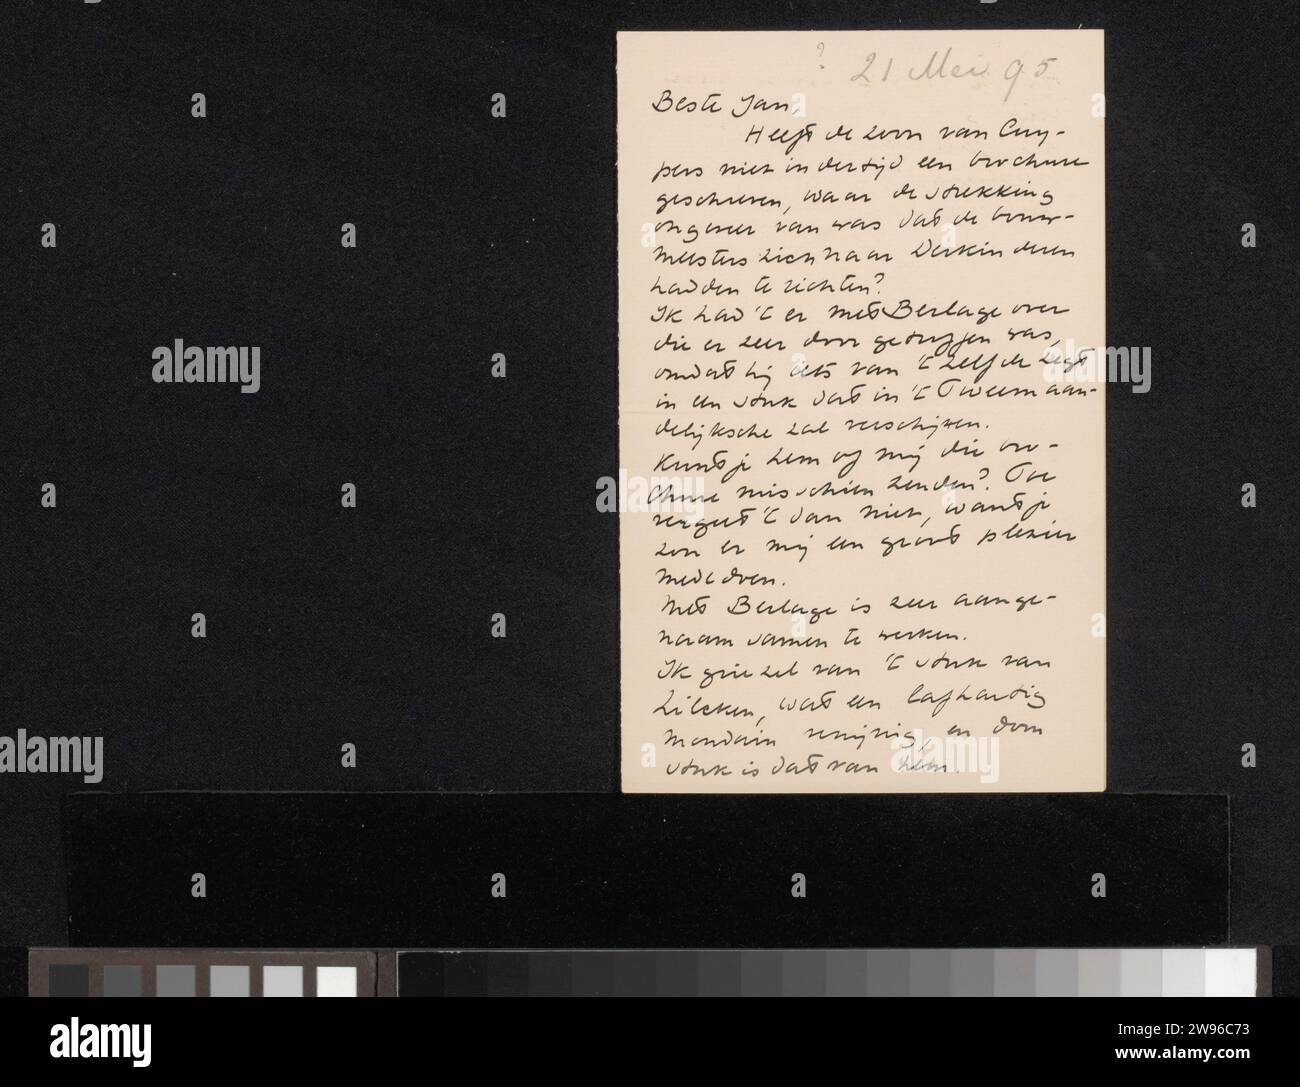 ? 21 Mei 95
Beste Jan,
Heeft de zoon van Cuy-
pers niet indertijd een brochure
geschreven, waar de strekking
ongeveer van was dat de bouw-
meesters zich naar Derkinderen
hadden te richten?
Ik had 't er met Berlage over
die er zeer door getroffen was,
omdat hij iets van 't zelfde zegt
in een stuk dat in 't Tweemaan-
delijksche zal verschijnen.
Kunt je hem of mij die bro-
chure misschien zenden? Toe
vergeet 't dan niet, want je
zou er mij een groot plezier
mede doen.
Met Berlage is zeer aange-
naam samen te werken.
Ik griezel van 't stuk van
Zilcken, wat een lafhartig
mondain venijnig, en dom
stuk is dat van hem.
alamy
alamy
alamy
alamy
alamy
Image ID: 2W96C73
www.alamy.com